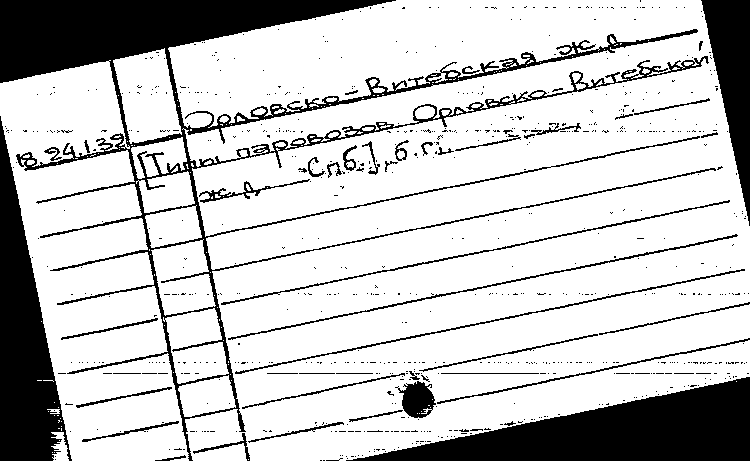 Орловско-Витебская ж.д.
18.24.1.39 [Типы паровозов Орловско-Витебской
ж.д. Спб.], б.г.